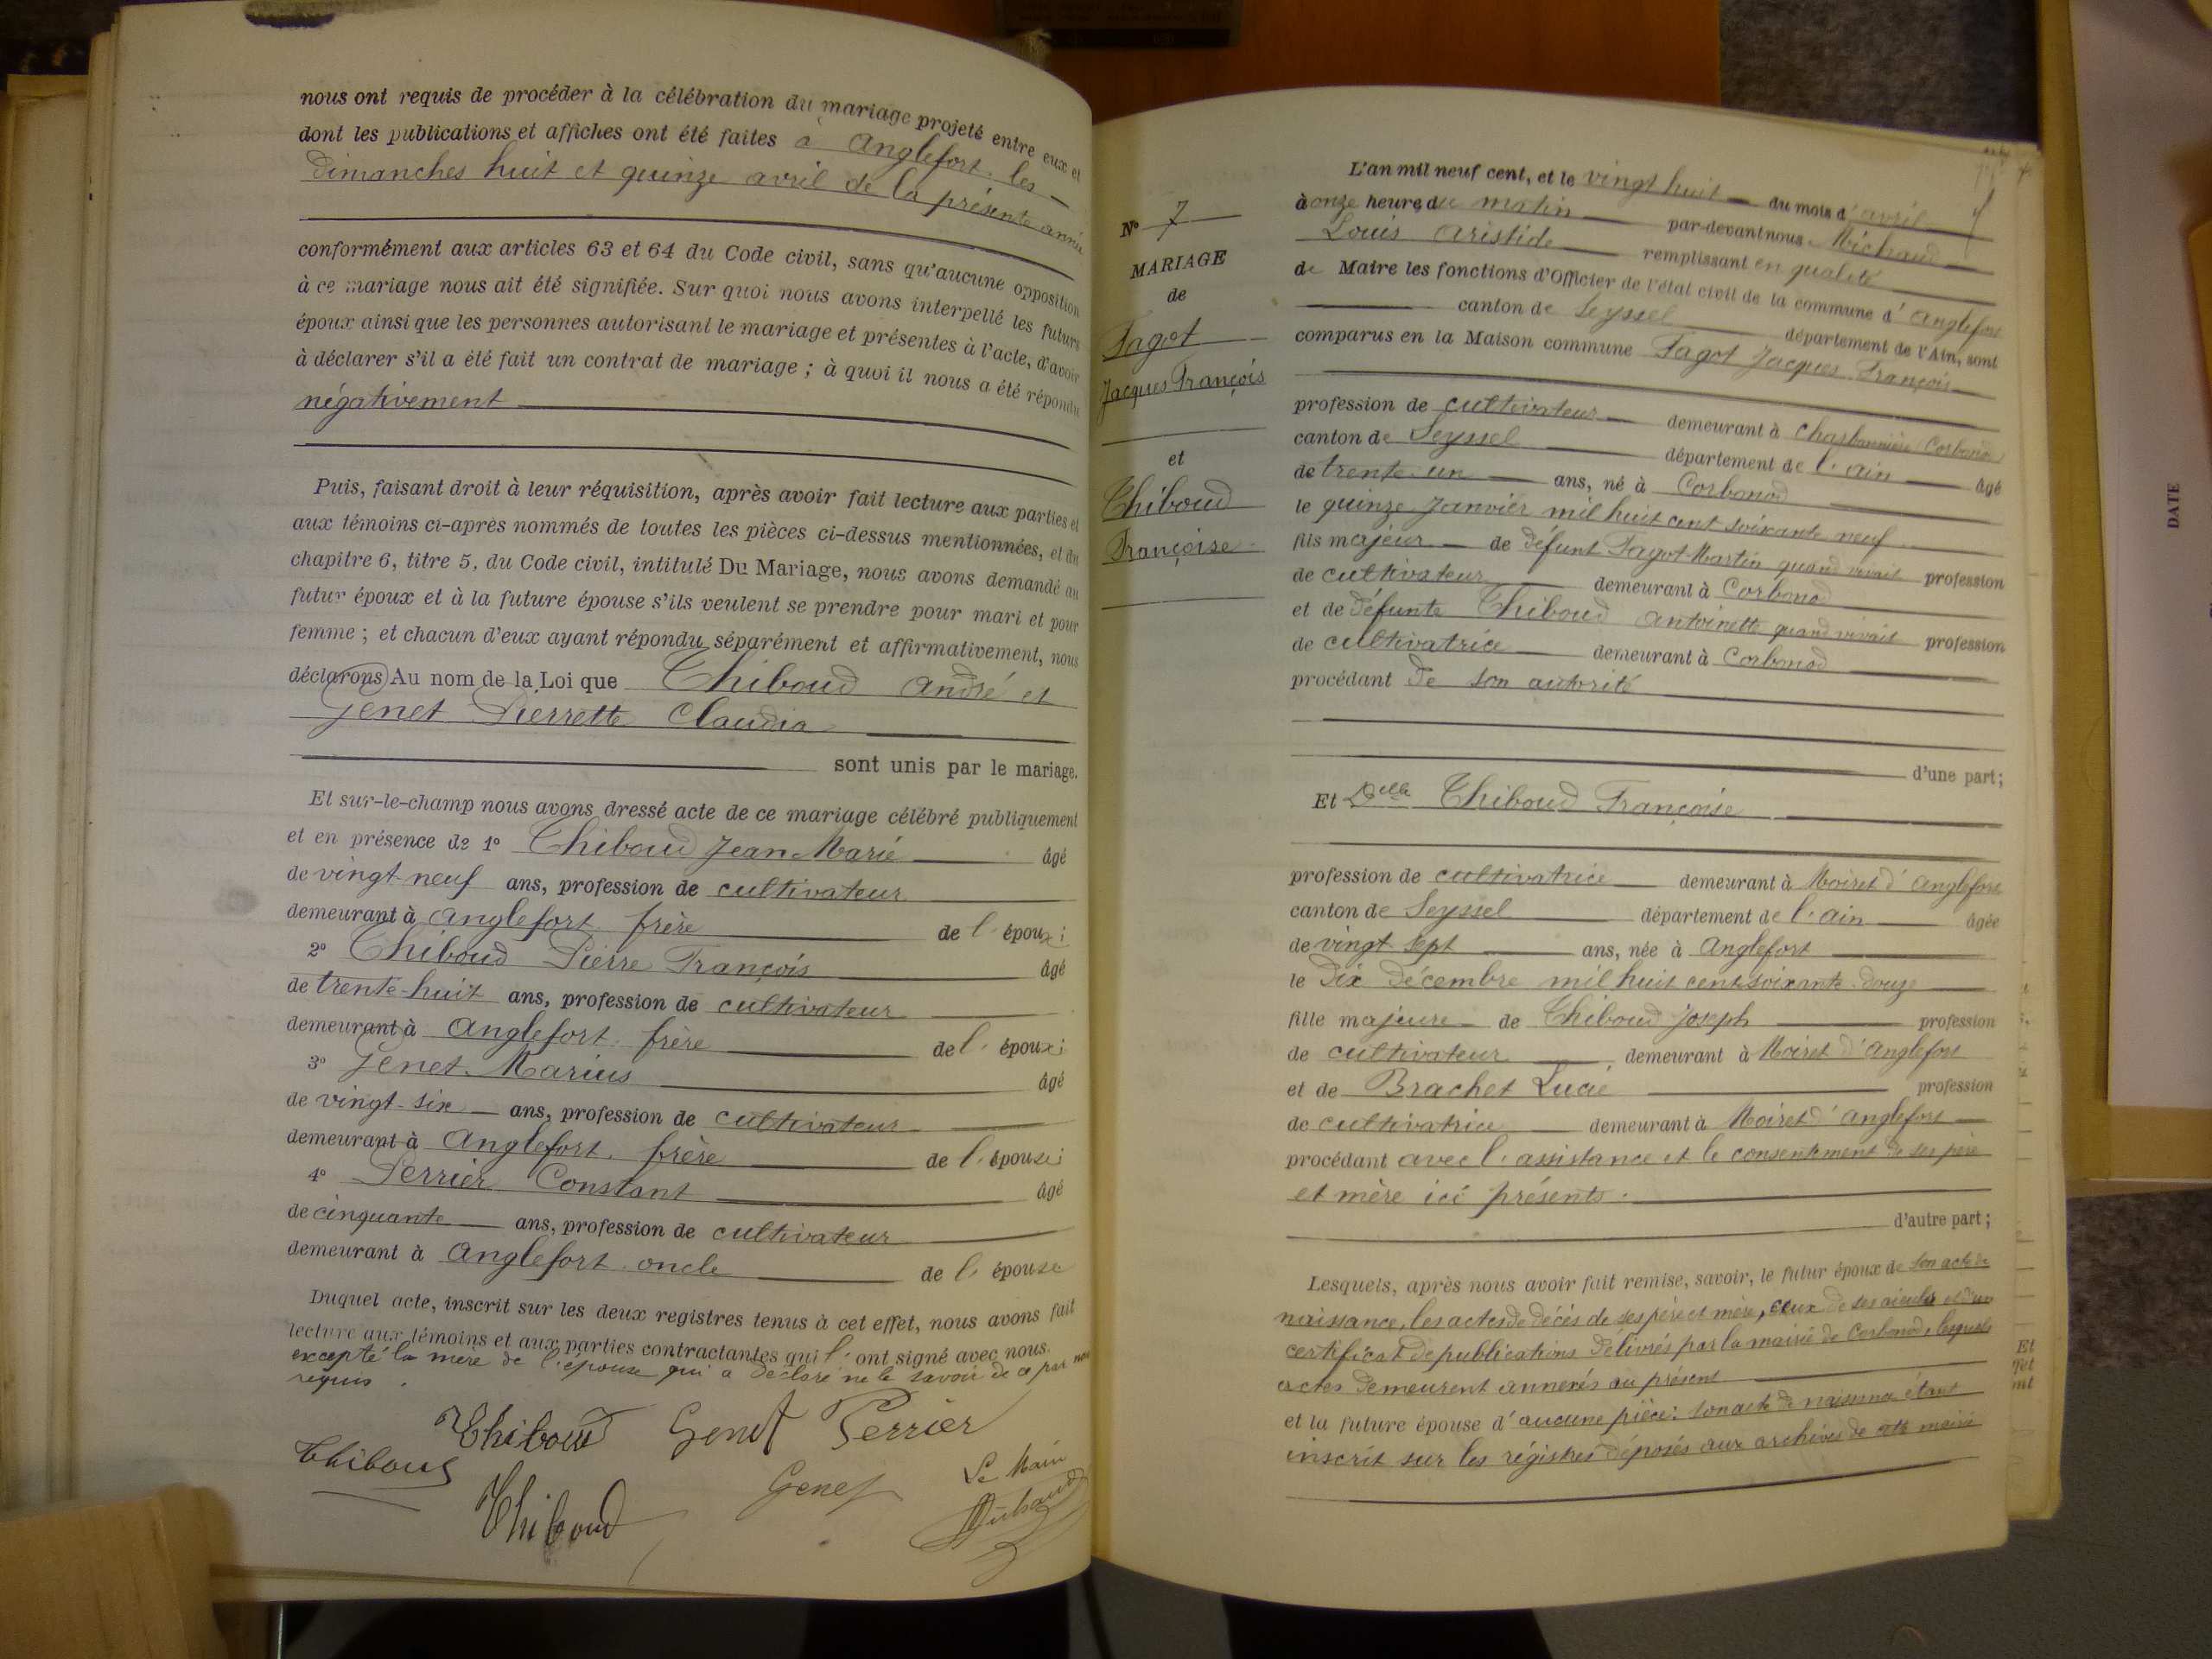 nous ont requis de procéder à la célébration du mariage projeté entre eux et
dont les publications et affiches ont été faites à Anglefort les
dimanches huit et quinze avril de la présente année
conformément aux articles 63 et 64 du Code civil, sans qu'aucune opposition
à ce mariage nous ait été signifiée. Sur quoi nous avons interpellé les futurs
époux ainsi que les personnes autorisant le mariage et présentes à l'acte, d'avoir
à déclarer s'il a été fait un contrat de mariage ; à quoi il nous a été répondu
négativement
Puis, faisant droit à leur réquisition, après avoir fait lecture aux parties et
aux témoins ci-après nommés de toutes les pièces ci-dessus mentionnées, et du
chapitre 6, titre 5, du Code civil, intitulé Du Mariage, nous avons demandé au
futur époux et à la future épouse s'ils veulent se prendre pour mari et pour
femme ; et chacun d'eux ayant répondu séparément et affirmativement, nous
déclarons Au nom de la Loi que Thiboud André et
Genet Pierrette Claudia
sont unis par le mariage.
Et sur-le-champ nous avons dressé acte de ce mariage célébré publiquement
et en présence de 1° Thiboud Jean Marie âgé
de vingt-neuf ans, profession de cultivateur
demeurant à Anglefort frère de l' époux ;
2° Thiboud Pierre François âgé
de trente-huit ans, profession de cultivateur
demeurant à Anglefort frère de l' époux ;
3° Genet Marius âgé
de vingt-six ans, profession de cultivateur
demeurant à Anglefort. frère de l' épouse ;
4° Perrier Constant âgé
de cinquante ans, profession de cultivateur
demeurant à Anglefort oncle de l' épouse
Duquel acte, inscrit sur les deux registres tenus à cet effet, nous avons fait
lecture aux témoins et aux parties contractantes qui l' ont signé avec nous.
excepté la mère de l'épouse qui a déclaré ne le savoir de ce par nous
requis.
Thiboud Genet Perrier
Thiboud
Thiboud Genet Le Maire
Michaud
N° 7
MARIAGE
de
Fagot
Jacques François
et
Thiboud
Françoise
L'an mil neuf cent, et le vingt huit du mois d'avril
à onze heures du matin par-devant nous Michaud
Louis Aristide remplissant en qualité
de Maire les fonctions d'Officier de l'état civil de la commune d' Anglefort
canton de Seyssel département de l'Ain, sont
comparus en la Maison commune Fagot Jacques François
profession de cultivateur demeurant à Charbonnière Corbonod
canton de Seyssel département de l'Ain âgé
de trente-un ans, né à Corbonod
le quinze Janvier mil huit cent soixante neuf
fils majeur de défunt Fagot Martin quand vivait profession
de cultivateur demeurant à Corbonod
et de défunte Thiboud Antoinette quand vivait profession
de cultivatrice demeurant à Corbonod
procédant de son autorité
d'une part ;
Et Delle Thiboud Françoise
profession de cultivatrice demeurant à Moiret d'Anglefort
canton de Seyssel département de l'Ain âgée
de vingt sept ans, née à Anglefort
le dix décembre mil huit cent soixante-douze
fille majeure de Thiboud Joseph profession
de cultivateur demeurant à Moiret d'Anglefort
et de Brachet Lucie profession
de cultivatrice demeurant à Moiret d'Anglefort
procédant avec l'assistance et le consentement de ses père
et mère ici présents.
d'autre part ;
Lesquels, après nous avoir fait remise, savoir, le futur époux de son acte de
naissance, les actes de décès de ses père et mère, ceux de ses aieuls et d'un
certificat de publications délivrés par la mairie de Corbonod, lesquels
actes demeurent annexés au présent
et la future épouse d'aucune pièce : son acte de naissance étant
inscrit sur les régistres déposés aux archives de cette mairie
Et
DATE